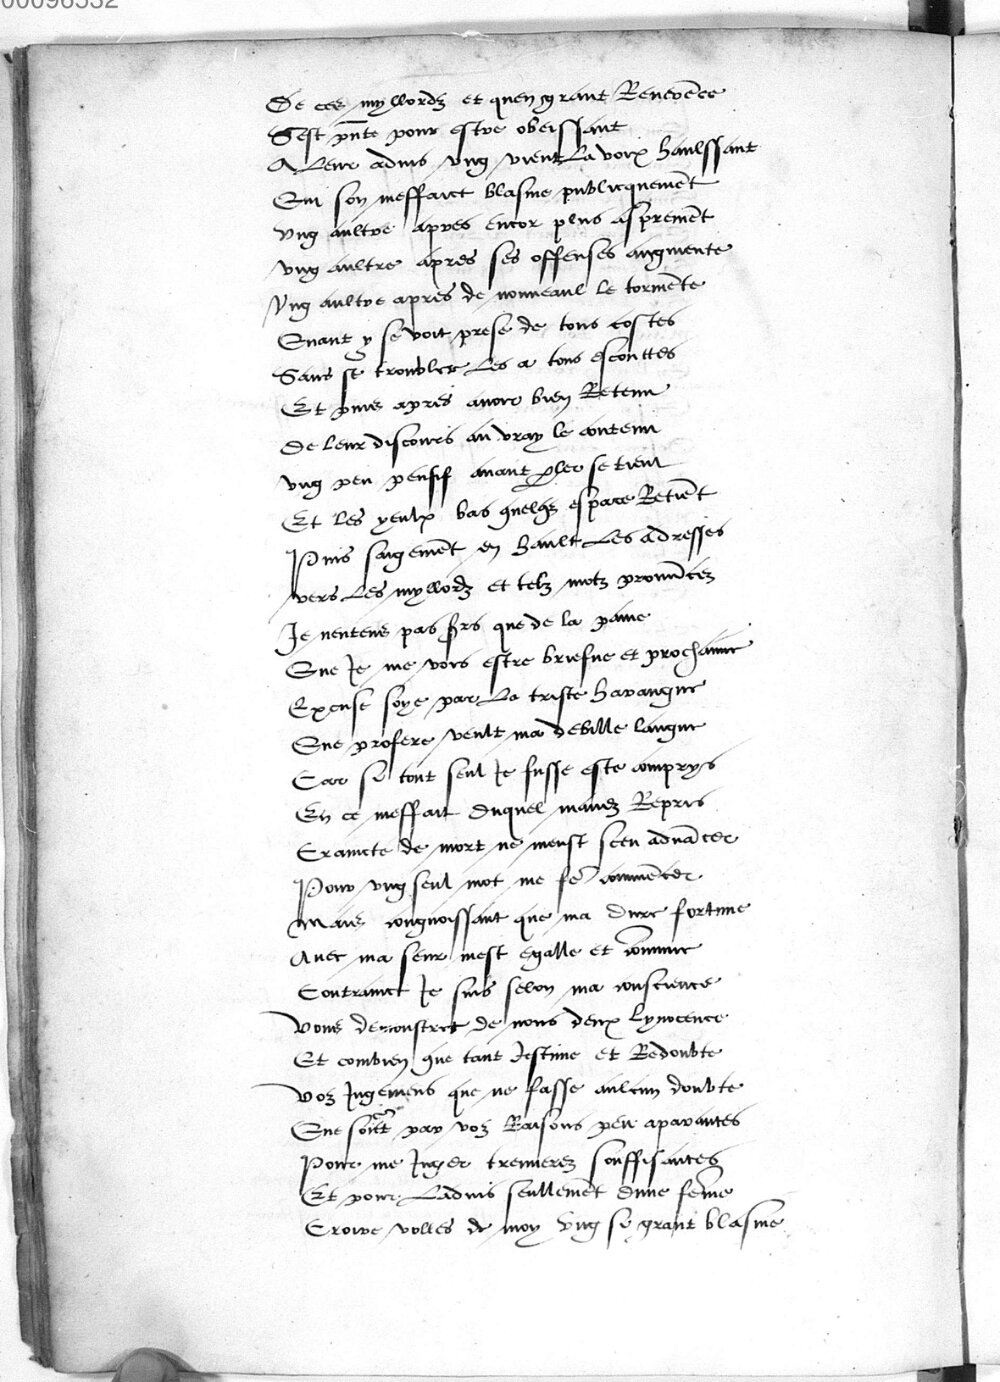 00096332
De ces myllordz et quen grant Reverēce
Sest pn̄te pour estre obeissant
A leur advis ung vient la voix haulssant
Qui son meffaict blasme publicquemēt
Ung aultre apres encor plus asprement
Ung aultre apres ses offenses augmente
Ung aultre apres de nouveaul le tormēte
Quant y se voit prese de tous costes
Sans se troubler les a tous escouttes
Et puis apres avoir bien Retenu
De leur discours au vray le contenu
Ung peu pensif avant pler se tient
Et les yeulx bas quelq espace Retiēt
Puis saigemēt en hault les adresses
vers les myllordz et telz motz pronūcez
Je nentens pas srs que de la paine
Que Je me voys estre briefve et prochaine
Excuse soye par la triste harangue
Que profere veult ma debille langue
Car se tout seul Je fusse este comprys
En ce meffait duquel mavez Repris
Craincte de mort ne meust sceu advācer
Pour ung seul mot me fe commēcer
Mais congnoissant que ma dure fortune
Avec ma seur mest egalle et cōmune
Contrainct Je suis selon ma conscience
Vous demonstrer de nous deux lynocence
Et combien que tant Jestime et Redoubte
Voz Jugemens que ne fasse aulcun doubte
Que soiēt par voz Raisons peu aparantes
Pour me Juger treuverez souffisantes
Et pour ladvis seullemēt dune feme
Croire volles de moy ung se grant blasme